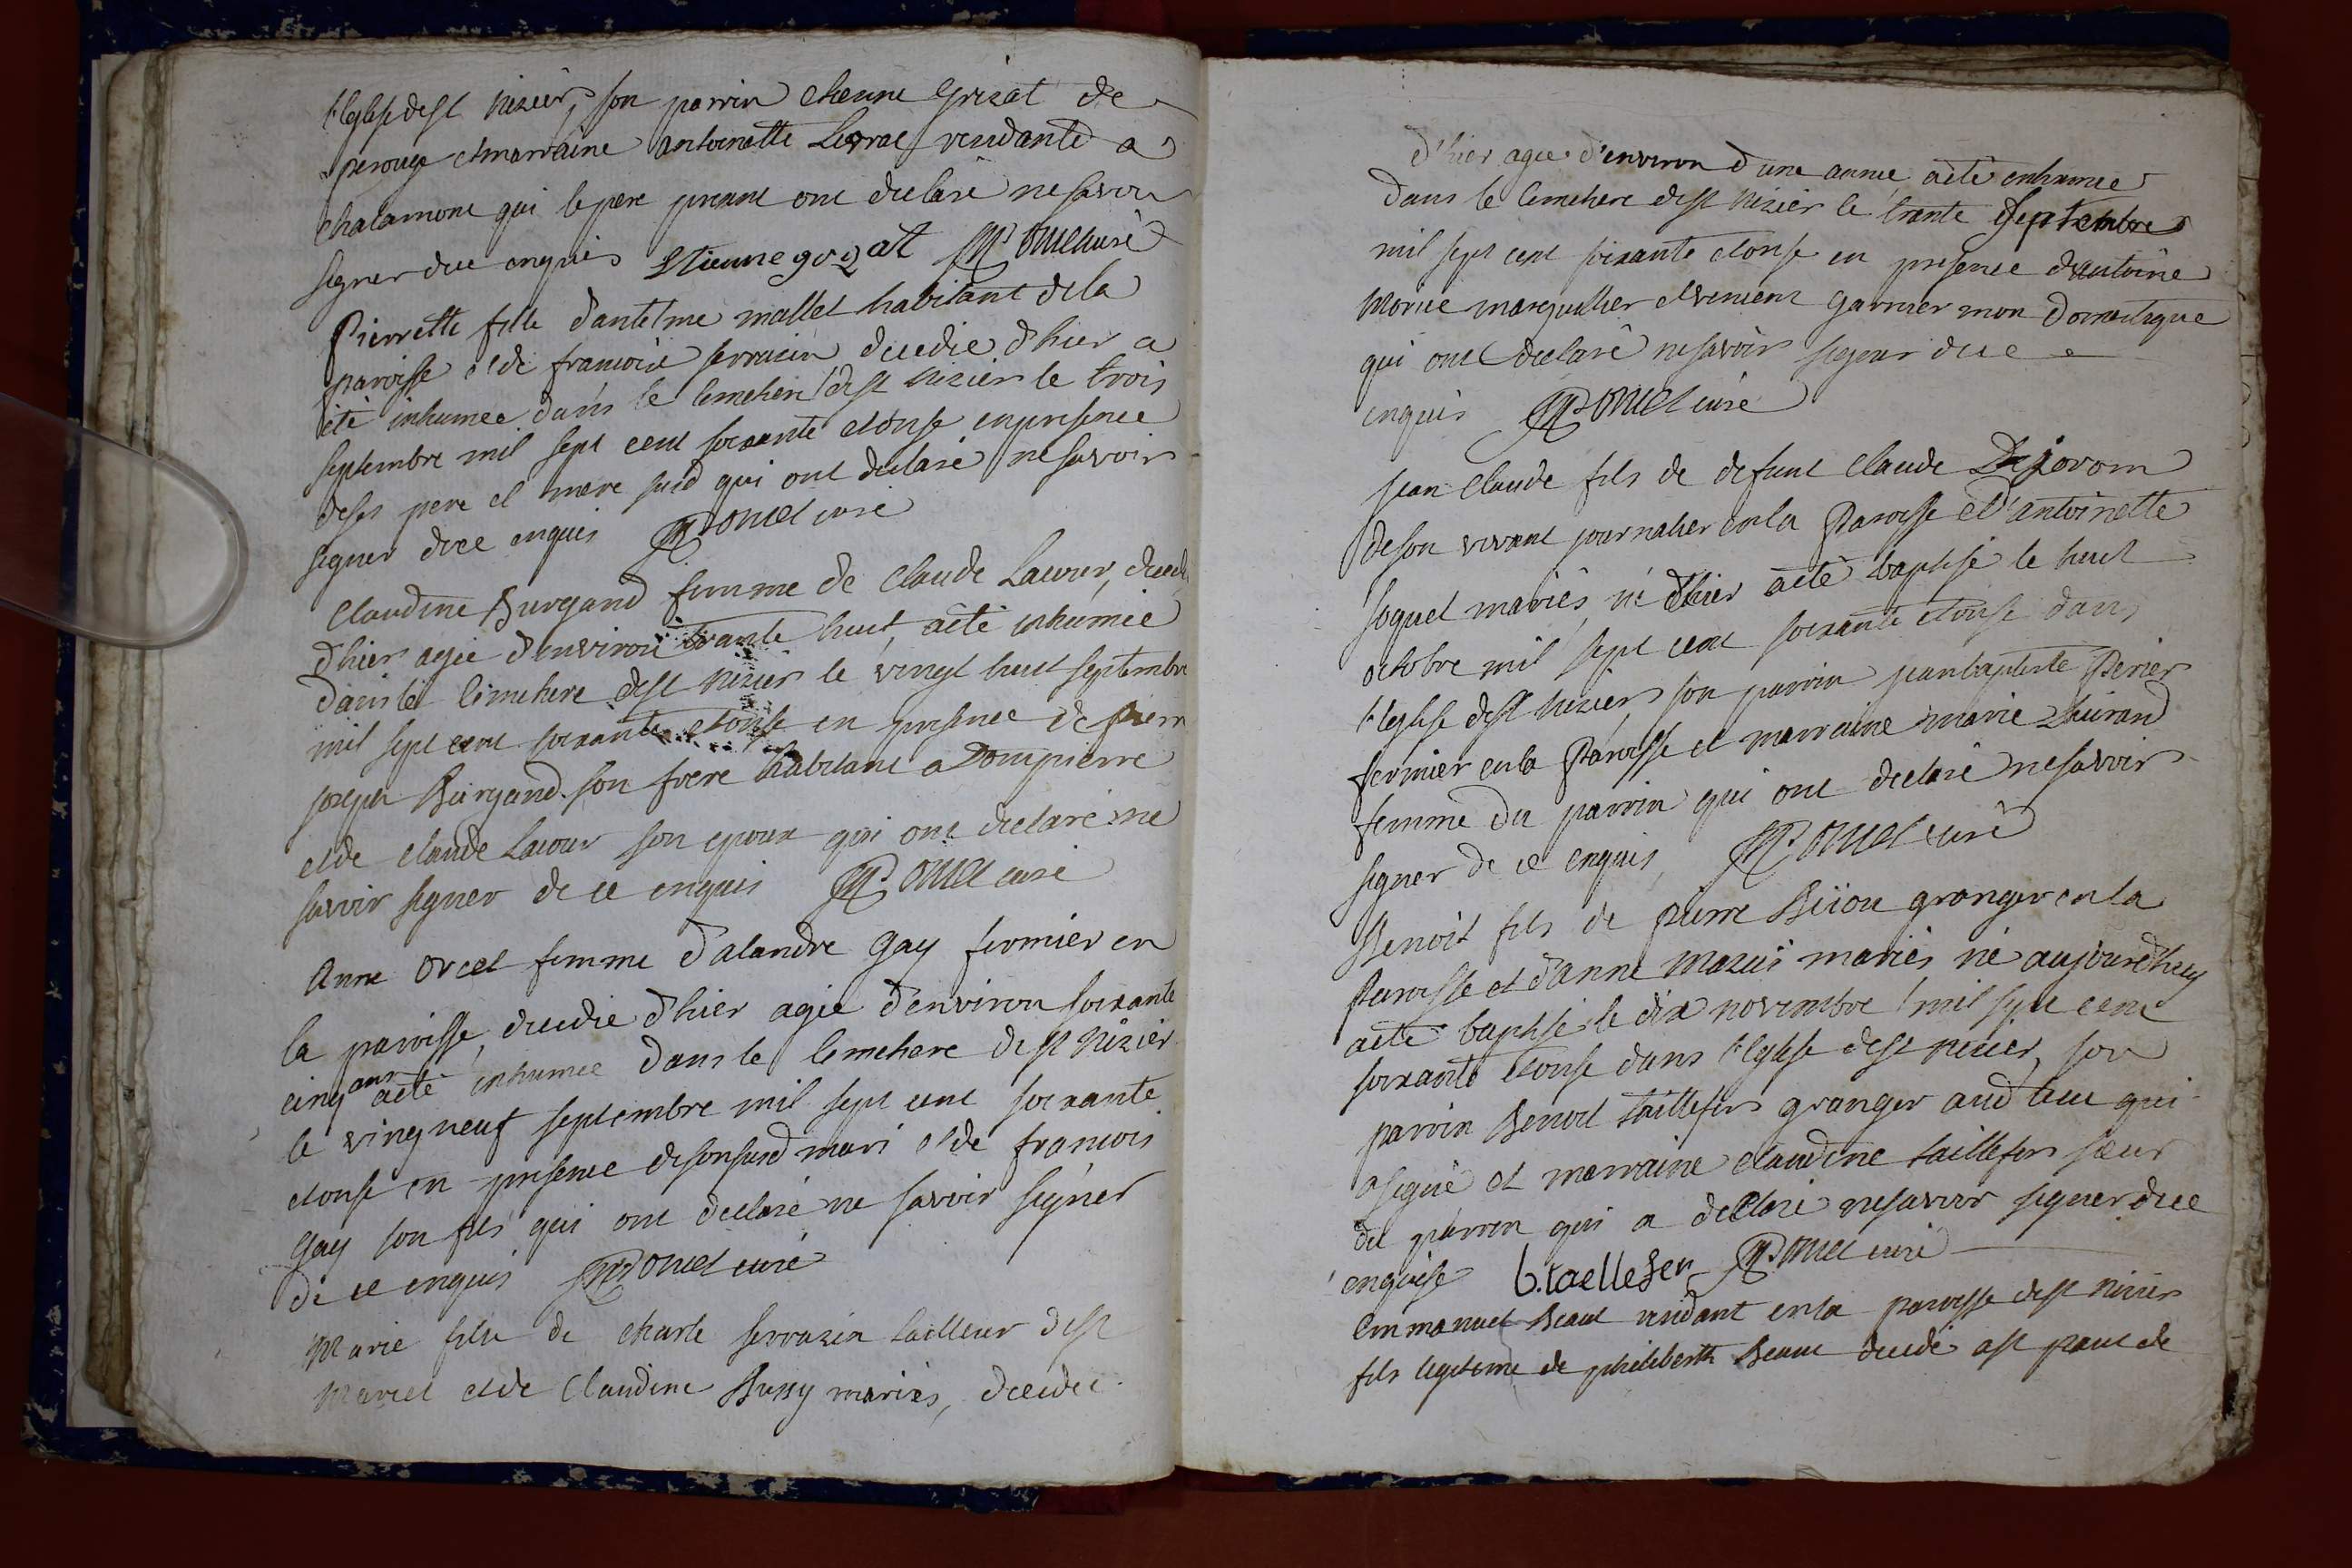 l'eglise de st nizier, son parrin etienne grisat de
perouge et marraine antoinette residante a
chalamont qui le pere present ont declaré ne savoir
signer de ce enquis Etienne gozat curé
Pierrette fille d'antelme mallet habitant de la
paroisse et de francoise serrasin decedée d'hier a
eté inhumee dans le cimetiere de st nizier le trois
septembre mil sept cent soixante et onse en presence
de ses pere et mere susd qui ont declaré ne savoir
signer de ce enquis curé
Claudine Burgand femme de Claude Lacour, decedée
d'hier agée d'environ trante huit, a eté inhumée
dans le cimetiere de st nizier le vingt huit septembre
mil sept cent soixante et onse en presence de pierre
joseph Burgand son frere habitant a Dompierre
et de claude Lacour son epoux qui ont declaré ne
savoir signer de ce enquis curé
Anne Orcet femme d'alandre Gay fermier en
la paroisse, decedée d'hier agée d'environ soixante
cinq ans a eté inhumee dans le cimetiere de st Nizier
le vingneuf septembre mil sept cent soixante
et onse en presence de son susd mari et de francois
Gay son fils qui ont declaré ne savoir signer
de ce enquis curé
Marie fille de charle serrasin tailleur de st
Marcel et de Claudine Bussy mariés, decedée
d'hier agee d'environ d'une annee a eté inhumee
dans le cimetiere de st Nizier le trante Septembre
mil sept cent soixante et onse en presence d'antoine
Morice marguillier et vincent Garnier mon domestique
qui ont declaré ne savoir signer de ce
enquis curé
jean Claude fils de defunt Claude
de son vivant journalier en la Paroisse et d'antoinette
soquet mariés, né d'hier a eté baptisé le huit
octobre mil sept cent soixante et onse dans
l'eglise de st nizier, son parrin jean baptiste Perier
fermier en la Paroisse et marraine marie Durand
femme du parrin qui ont declaré ne savoir
signer de ce enquis, curé
Benoit fils de pierre granger en la
Paroisse et d'anne mariés né aujourd'huy
a eté baptisé le dix novembre mil sept cent
soixante et onse dans l'eglise de st nizier, son
parrin Benoit taillefer granger aud lieu qui
a signé et marraine claudine taillefer sœur
du parrin qui a declaré ne savoir signer de ce
enquise b. taellefer curé
Emmanuel Beaut residant en la paroisse de st Nizier
fils legitime de philiberth Beaut decedé a st paul de